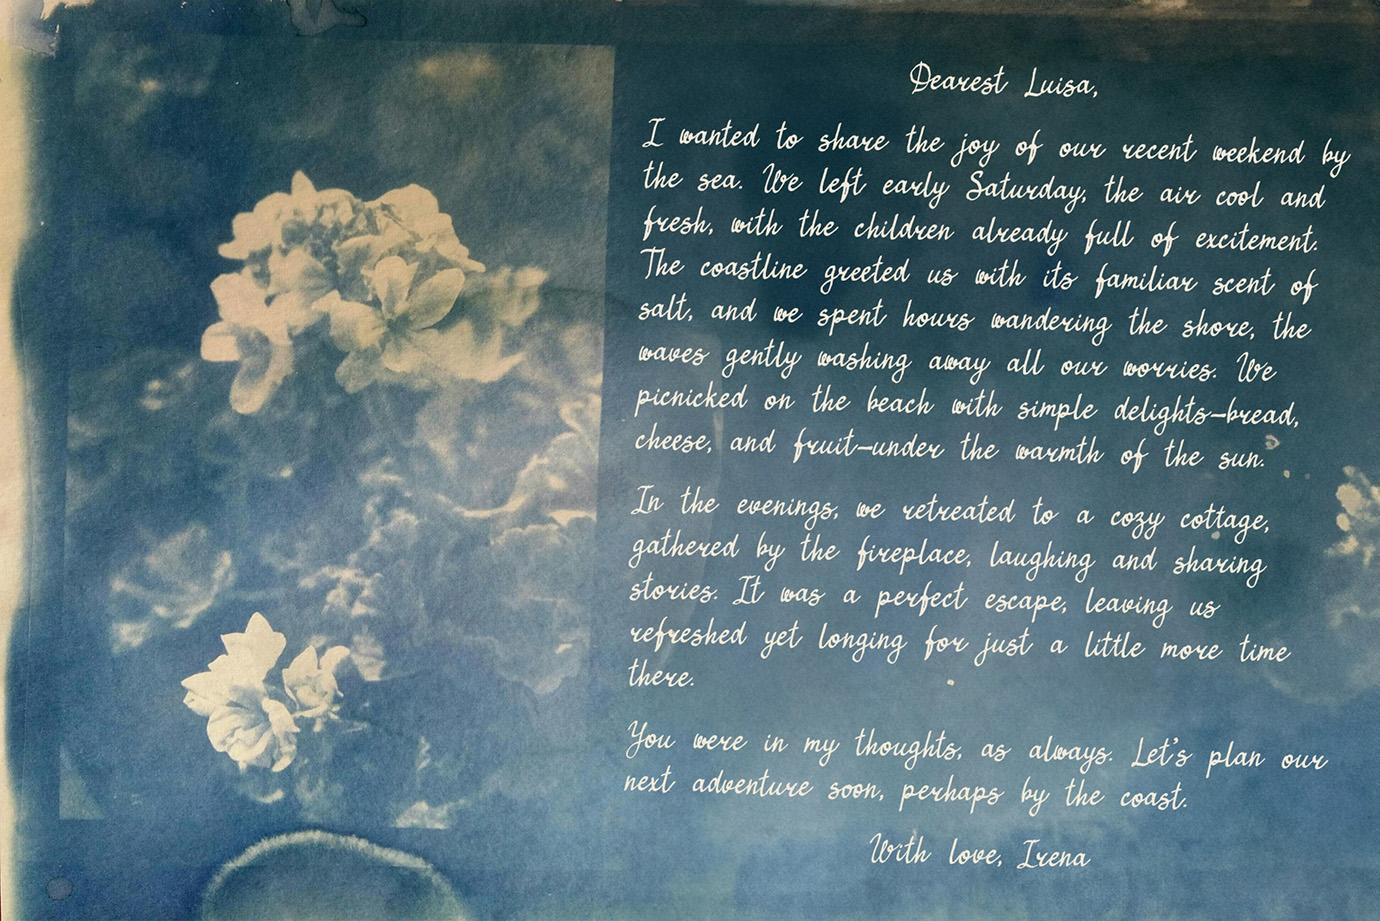 Dearest Luisa,
I wanted to share the joy of our recent weekend by
the sea. We left early Saturday, the air cool and
fresh, with the children already full of excitement.
The coastline greeted us with its familiar scent of
salt, and we spent hours wandering the shore, the
waves gently washing away all our worries. We
picnicked on the beach with simple delights—bread,
cheese, and fruit—under the warmth of the sun.
In the evenings, we retreated to a cozy cottage,
gathered by the fireplace, laughing and sharing
stories. It was a perfect escape, leaving us
refreshed yet longing for just a little more time
there.
You were in my thoughts, as always. Let's plan our
next adventure soon, perhaps by the coast.
With love, Irena